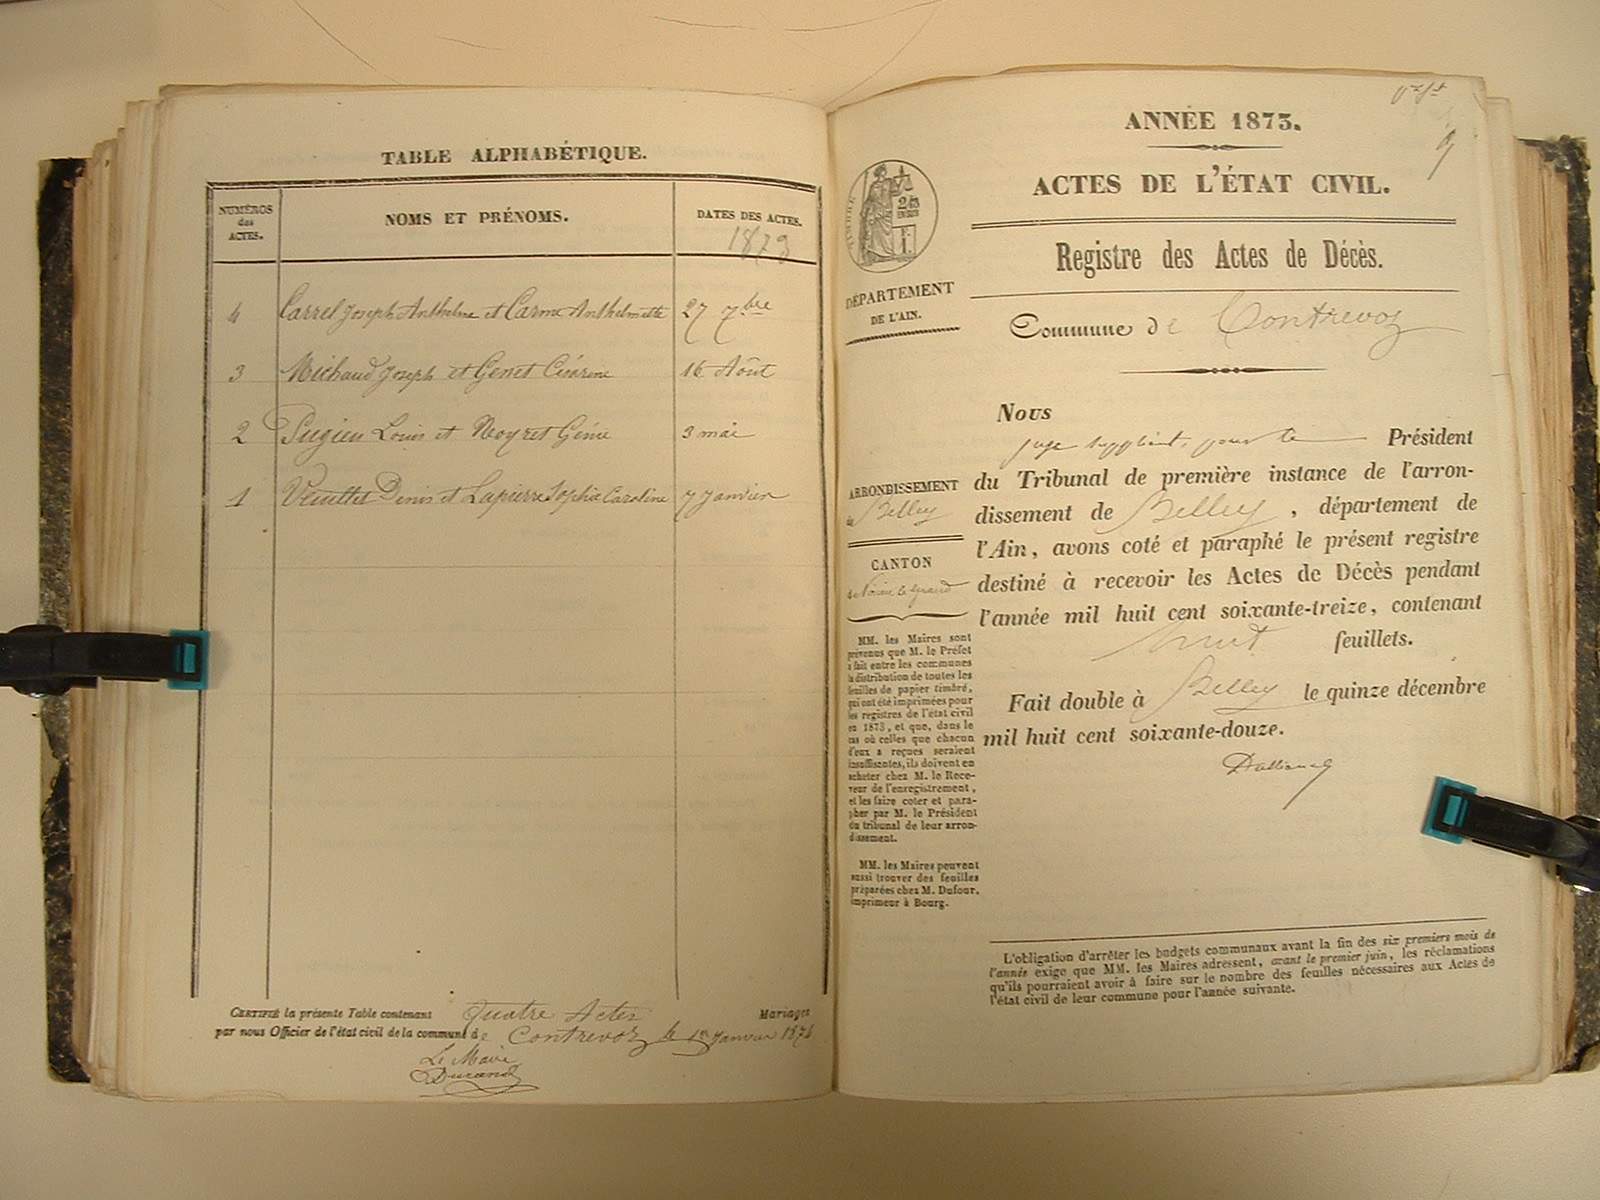 TABLE ALPHABÉTIQUE.
NUMÉROS des ACTES.
NOMS ET PRÉNOMS.
DATES DES ACTES.
1873
4 Carrel Joseph Anthelme et Carme Anthelmette 27 7bre
3 Michaud Joseph et Genet Césarine 16 Août
2 Pugieu Louis et Noyret Génie 3 mai
1 Veuillet Denis et Lapierre Sophie Caroline 7 Janvier
CERTIFIÉ la présente Table contenant Quatre Actes Mariages
par nous Officier de l'état civil de la commune de Contrevoz le 1er Janvier 1874
Le Maire
Durand
ANNÉE 1873.
ACTES DE L'ÉTAT CIVIL.
Registre des Actes de Décès.
Commune de Contrevoz
TIMBRE
DÉPARTEMENT
DE L'AIN.
ARRONDISSEMENT
de Belley
CANTON
de Virieu le grand
MM. les Maires sont
prévenus que M. le Préfet
a fait entre les communes
la distribution de toutes les
feuilles de papier timbré,
qui ont été imprimées pour
les registres de l'état civil
en 1873, et que, dans le
cas où celles que chacun
d'eux a reçues seraient
insuffisantes, ils doivent en
acheter chez M. le Rece-
veur de l'enregistrement,
et les faire coter et para-
pher par M. le Président
du tribunal de leur arron-
dissement.
MM. les Maires peuvent
aussi trouver des feuilles
préparées chez M. Dufour,
imprimeur à Bourg.
Nous
juge suppléant, pour le Président
du Tribunal de première instance de l'arron-
dissement de Belley, département de
l'Ain, avons coté et paraphé le présent registre
destiné à recevoir les Actes de Décès pendant
l'année mil huit cent soixante-treize, contenant
huit feuillets.
Fait double à Belley le quinze décembre
mil huit cent soixante-douze.
L'obligation d'arrêter les budgets communaux avant la fin des six premiers mois de
l'année exige que MM. les Maires adressent, avant le premier juin, les réclamations
qu'ils pourraient avoir à faire sur le nombre des feuilles nécessaires aux Actes de
l'état civil de leur commune pour l'année suivante.